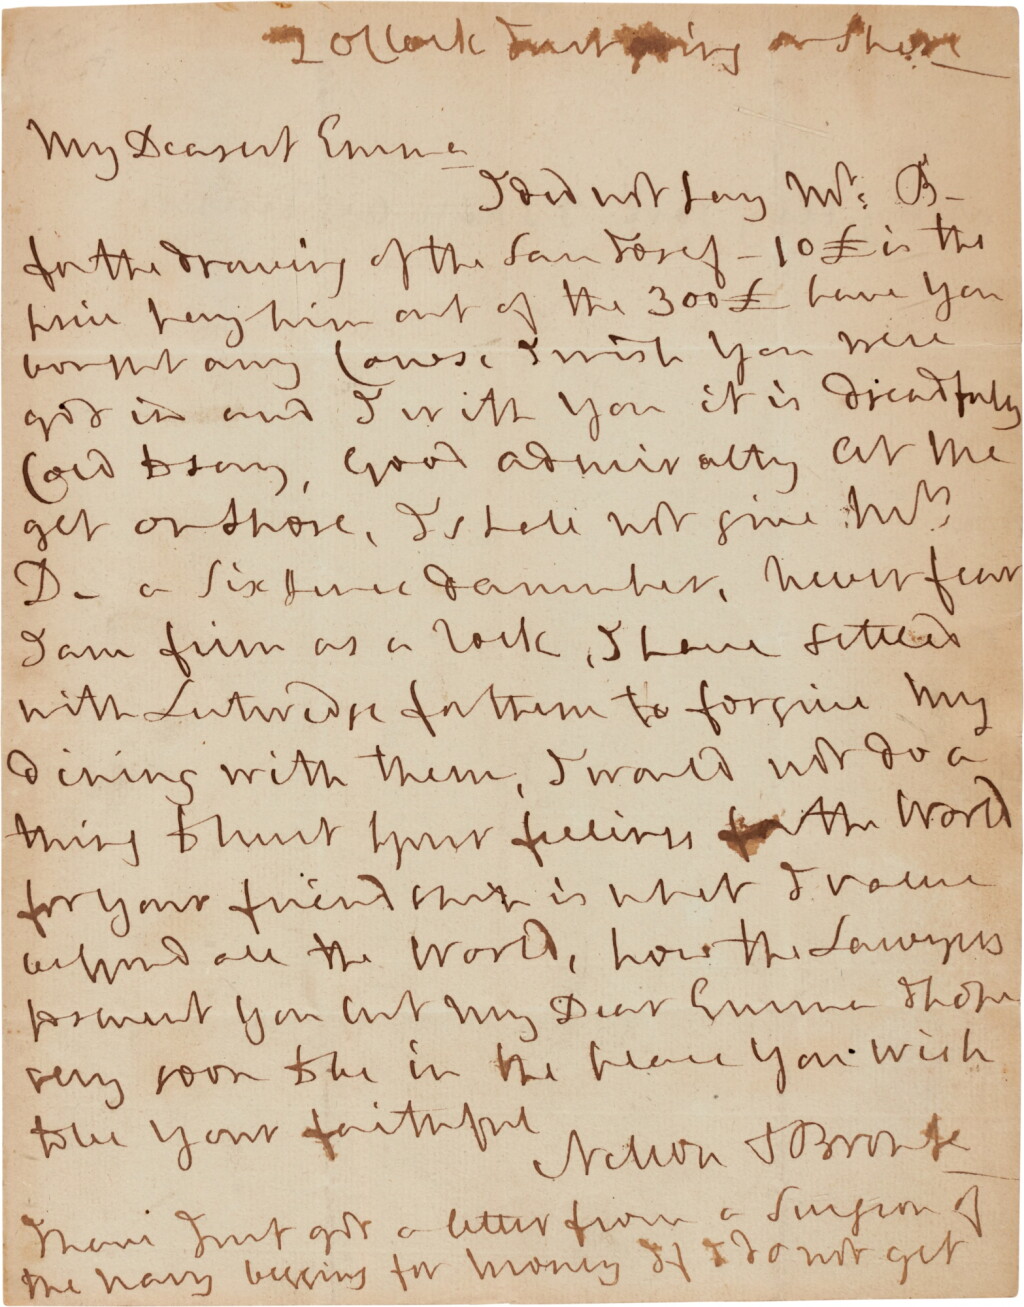 2 oClock Just going on Shore
My Dearest Emma
I did not pay Mr: B-
for the drawing of the San Josef - 10£ is the
price pay him out of the 300£ have you
bought any Cows, I wish you were
got in and I with you it is dreadfully
Cold to day, Good admiralty let me
get on shore, I shall not give Mrs:
D- a Sixpence dammher, never fear
I am firm as a rock, I have settled
with Lutwidge for them to forgive my
dining with them, I would not do a
thing to hurt your feelings for the World
for your friendship is what I value
beyond all the World, how the Lawyers
prevent you but my Dear Emma I hope
very soon to be in the place you wish
to be your faithful
Nelson & Bronte
I have Just got a letter from a Surgeon of
the navy begging for money if I do not get